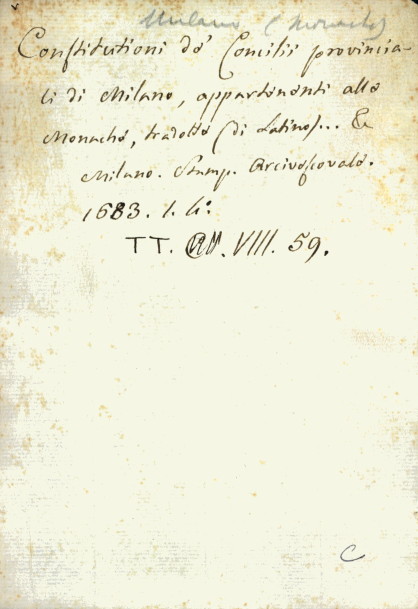 Milano (Monache)
Constitutioni de' Concilii provincia-
li di Milano, appartenenti alle
Monache, tradotte (di Latino)... &
Milano. Stamp. Arcivescovale.
1683. 1. 4°.
TT. VIII. 59.
C